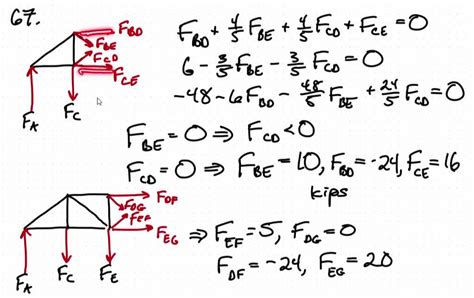 67.
F_BD
F_BE
F_CD
F_CE
F_A
F_C
F_BD + 4/5 F_BE + 4/5 F_CD + F_CE = 0
6 - 3/5 F_BE - 3/5 F_CD = 0
-48 - 6F_BD - 48/5 F_BE + 24/5 F_CD = 0
F_BE = 0 ⇒ F_CD < 0
F_CD = 0 ⇒ F_BE = 10, F_BD = -24, F_CE = 16
kips
F_DF
F_DG
F_EF
F_EG
F_A
F_C
F_E
⇒ F_EF = 5, F_DG = 0
F_DF = -24, F_EG = 20